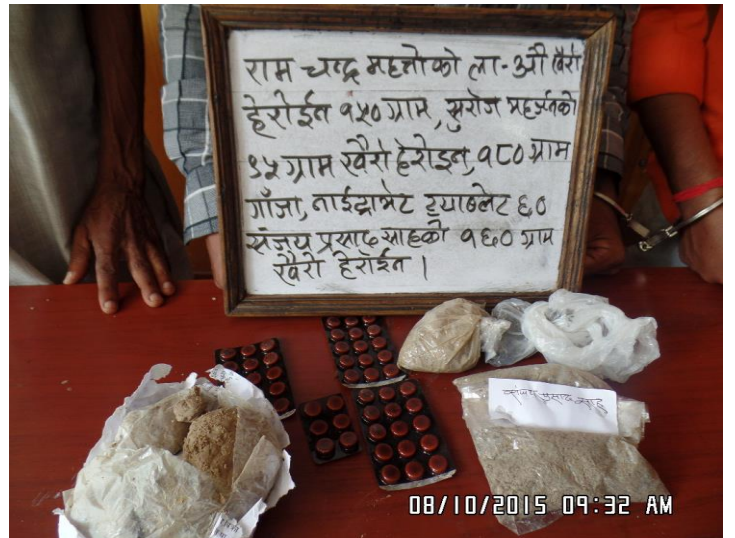 राम चन्द्र महत्तोको ला-औ खैरो
हेरोईन १५० ग्राम, सुरोज महर्जनको
९५ ग्राम खैरो हेरोइन, १८० ग्राम
गाँजा, नाईट्राभेट ट्याब्लेट ६०
संजय प्रसाद साहको १६० ग्राम
खैरो हेरोईन ।
संजय प्रसाद साह
08/10/2015 09:32 AM